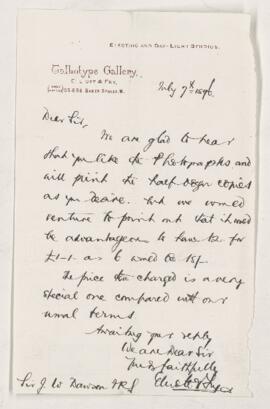 ELECTRIC AND DAY-LIGHT STUDIOS.
Talbotype Gallery.
ELLIOTT & FRY,
55 & 56 BAKER STREET, W.
July 7th 1896
Dear Sir,
We are glad to hear
that you like the Photographs and
will print the half dozen copies
as you desire. but we would
venture to point out that it would
be advantageous to have for
£1-1- as to
The price charged is a very
special one compared with our
usual terms
Awaiting your reply
We are Dear Sir
Yours faithfully
Elliott & Fry
Sir J. W. Dawson FRS